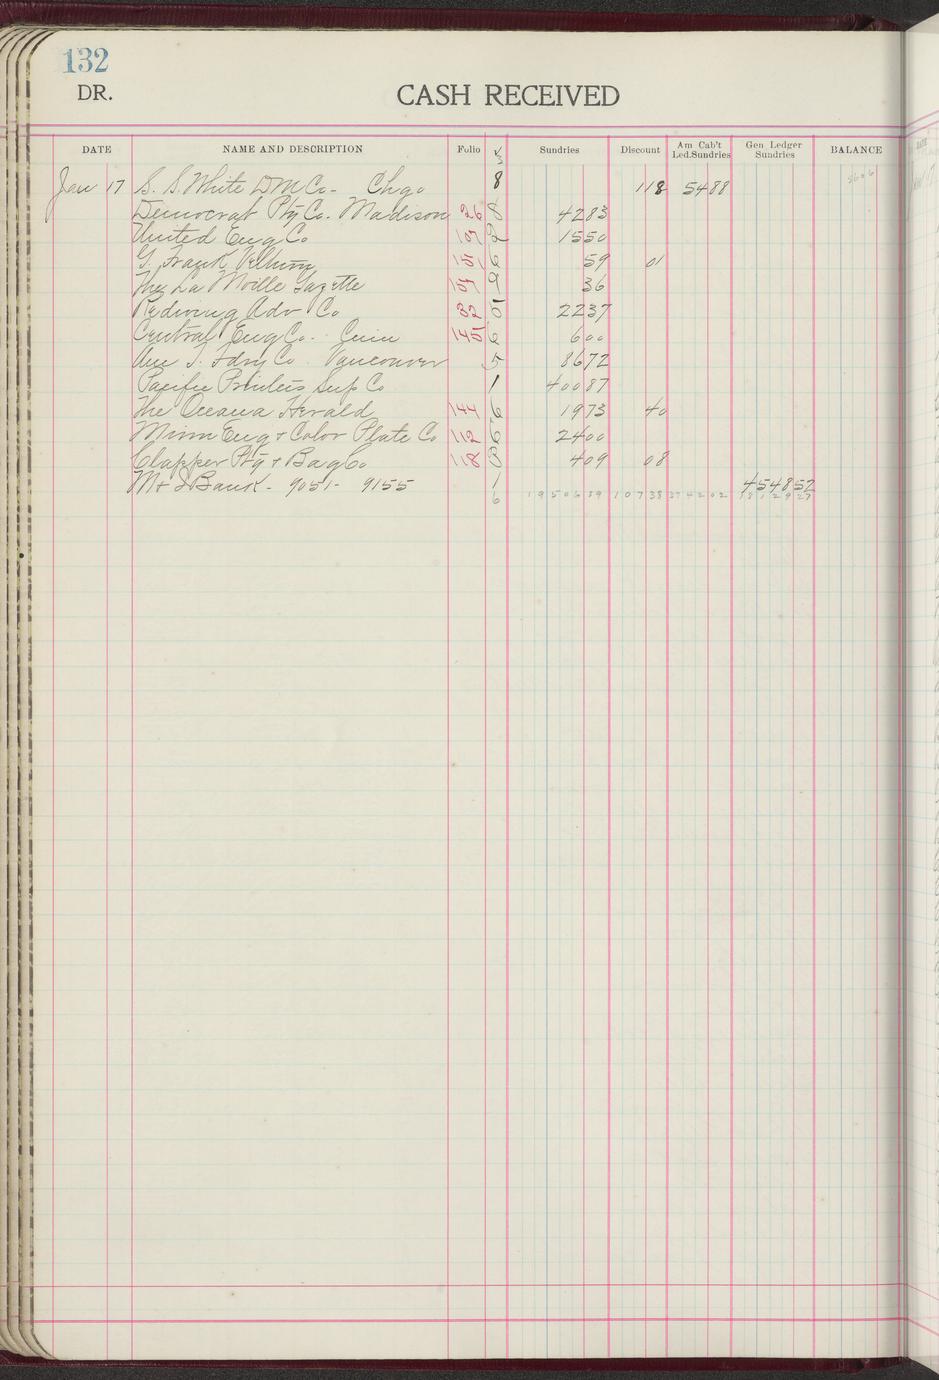 132
DR.
CASH RECEIVED
DATE NAME AND DESCRIPTION Folio √ Sundries Discount Am Cab't Led.Sundries Gen Ledger Sundries BALANCE
3
Jan 17 S. S. White D M Co - Chgo 8 1 18 54 88
Democrat Ptg Co. Madison 26 8 42 83
United Eng Co 107 2 15 50
G. Frank 151 6 59 01
The La Moille Gazette 157 9 36
Adv Co 32 5 22 37
Central Eng Co. 145 6 6 00
Am T. Fdry Co Vancouver 5 86 72
Pacific Printers Sup Co 1 400 87
The Oceana Herald 144 6 19 73 40
Minn Eng & Color Plate Co 112 6 24 00
Clapper Ptg & Bag Co 118 8 4 09 08
M & I Bank - 9051 - 9155 1 4548 52
6 19506 39 107 38 3742 02 18129 27